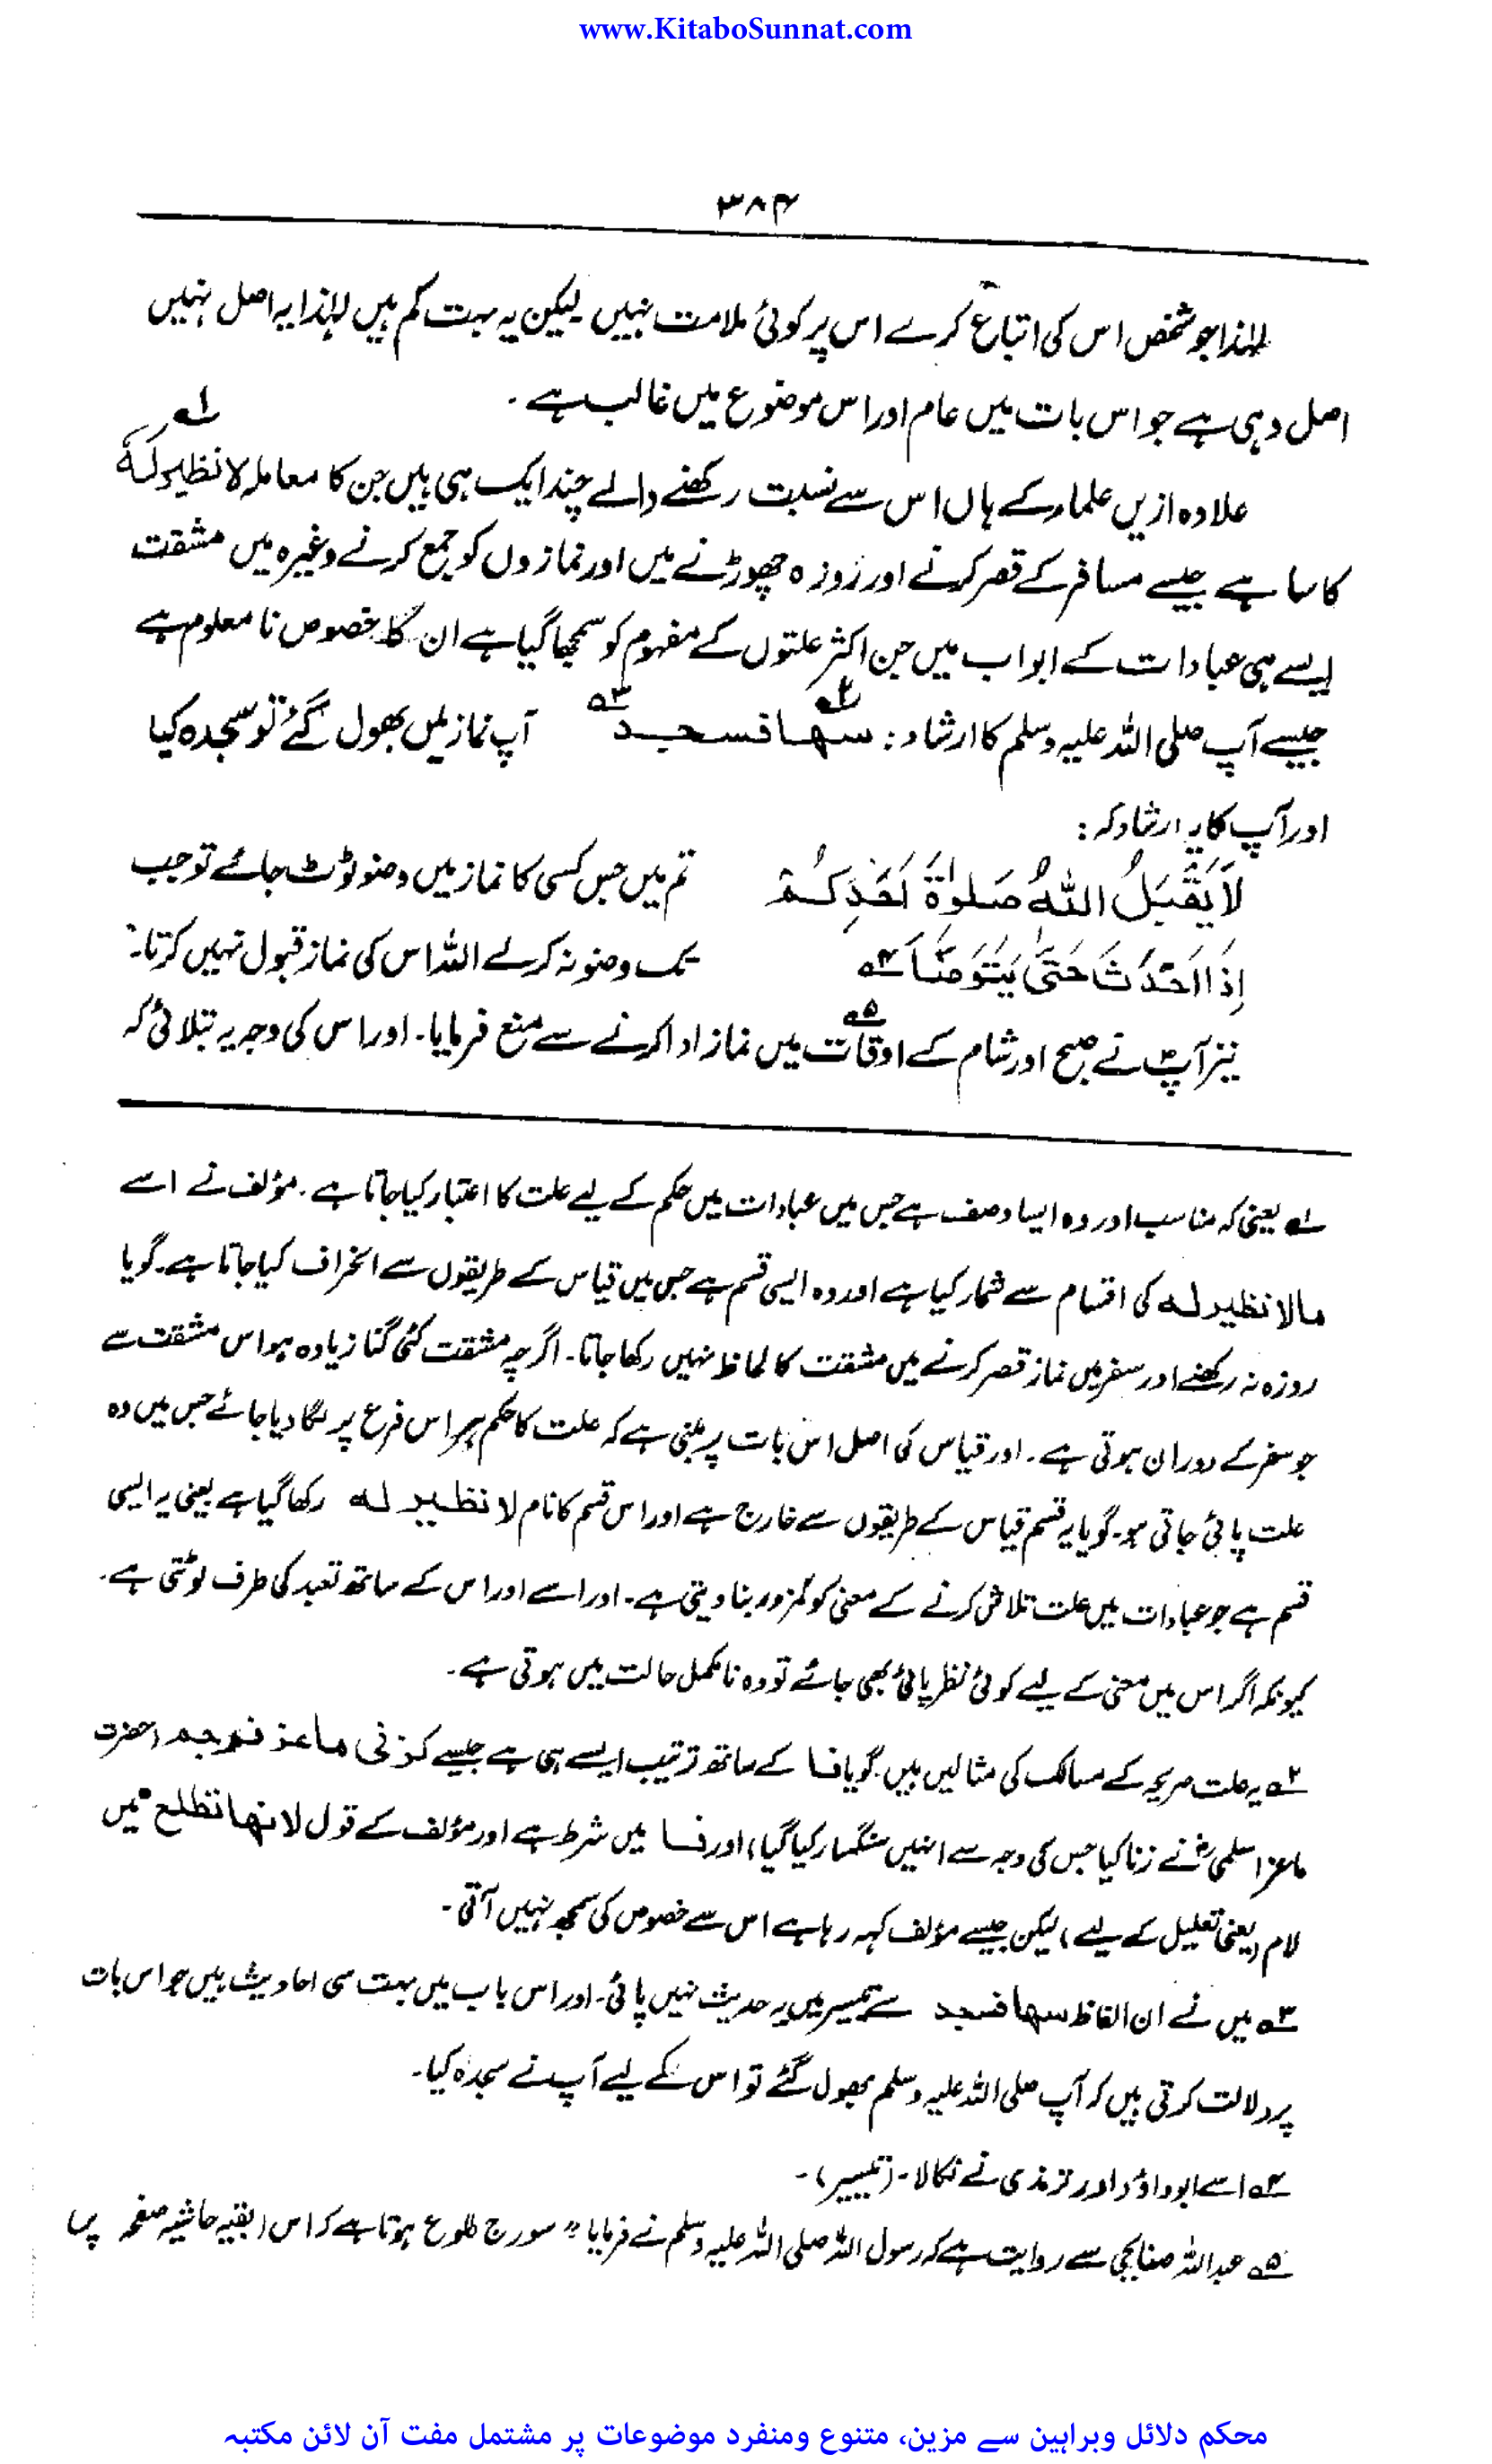 www.KitaboSunnat.com
۳۸۴
لہٰذا جو شخص اس کی اتباع کرے اس پر کوئی ملامت نہیں لیکن یہ بہت کم ہیں لہٰذا یہ اصل نہیں
اصل وہی ہے جو اس بات میں عام اور اس موضوع میں غالب ہے ۔
علاوہ ازیں علماء کے ہاں اس سے نسبت رکھنے والے چند ایک ہی ہیں جن کا معاملہ لا نظیر لہٗ ۱ھ
کا سا ہے جیسے مسافر کے قصر کرنے اور روزہ چھوڑنے میں اور نمازوں کو جمع کرنے وغیرہ میں مشقت
ایسے ہی عبادات کے ابواب میں جن اکثر علتوں کے مفہوم کو سمجھا گیا ہے ان کا خصوص نا معلوم ہے
جیسے آپ صلی اللہ علیہ وسلم کا ارشاد : سھا ۲ھ فسجد ۳ھ آپ نماز میں بھول گئے تو سجدہ کیا
اور آپ کا یہ ارشاد کہ :
لَا یَقْبَلُ اللّٰہُ صَلٰوۃَ اَحَدِکُمْ تم میں جس کسی کا نماز میں وضو ٹوٹ جائے تو جب
اِذَا اَحْدَثَ حَتّٰی یَتَوَضَّأَ ۴ھ تک وضو نہ کر لے اللہ اس کی نماز قبول نہیں کرتا۔
نیز آپؐ نے صبح اور شام کے اوقات ۵ھ میں نماز ادا کرنے سے منع فرمایا۔ اور اس کی وجہ یہ بتلائی کہ
۱ھ یعنی کہ مناسب اور وہ ایسا وصف ہے جس میں عبادات میں حکم کے لیے علت کا اعتبار کیا جاتا ہے ۔ مؤلف نے اسے
مالا نظیر لہ کی اقسام سے شمار کیا ہے اور وہ ایسی قسم ہے جس میں قیاس کے طریقوں سے انحراف کیا جاتا ہے۔ گویا
روزہ نہ رکھنے اور سفر میں نماز قصر کرنے میں مشقت کا لحاظ نہیں رکھا جاتا۔ اگرچہ مشقت کئی گنا زیادہ ہو اس مشقت سے
جو سفر کے دوران ہوتی ہے ۔ اور قیاس کی اصل اس بات پر مبنی ہے کہ علت کا حکم ہر اس فرع پر لگا دیا جائے جس میں وہ
علت پائی جاتی ہو۔ گویا یہ قسم قیاس کے طریقوں سے خارج ہے اور اس قسم کا نام لا نظیر لہ رکھا گیا ہے یعنی یہ ایسی
قسم ہے جو عبادات میں علت تلاش کرنے کے معنی کو کمزور بنا دیتی ہے۔ اور اسے اور اس کے ساتھ تعبد کی طرف لوٹتی ہے۔
کیونکہ اگر اس میں معنی کے لیے کوئی نظر پائی بھی جائے تو وہ نامکمل حالت میں ہوتی ہے ۔
۲ھ یہ علت صریحہ کے مسالک کی مثالیں ہیں۔ گویا فا کے ساتھ ترتیب ایسے ہی ہے جیسے کہ زنی ماعز فرجم (حضرت
ماعز اسلمیؓ نے زنا کیا جس کی وجہ سے انہیں سنگسار کیا گیا) اور فا میں شرط ہے اور مؤلف کے قول لانھا تطلع میں
لام (یعنی تعلیل کے لیے) لیکن جیسے مؤلف کہہ رہا ہے اس سے خصوص کی سمجھ نہیں آتی ۔
۳ھ میں نے ان الفاظ سھا فسجد سے تیسیر میں یہ حدیث نہیں پائی۔ اور اس باب میں بہت سی احادیث ہیں جو اس بات
پر دلالت کرتی ہیں کہ آپ صلی اللہ علیہ وسلم بھول گئے تو اس کے لیے آپ نے سجدہ کیا۔
۴ھ اسے ابوداؤد اور ترمذی نے نکالا ۔ (تیسیر) ۔
۵ھ عبداللہ صنابحی سے روایت ہے کہ رسول اللہ صلی اللہ علیہ وسلم نے فرمایا "سورج طلوع ہوتا ہے کہ اس (بقیہ حاشیہ صفحہ پر
محکم دلائل وبراہین سے مزین، متنوع ومنفرد موضوعات پر مشتمل مفت آن لائن مکتبہ